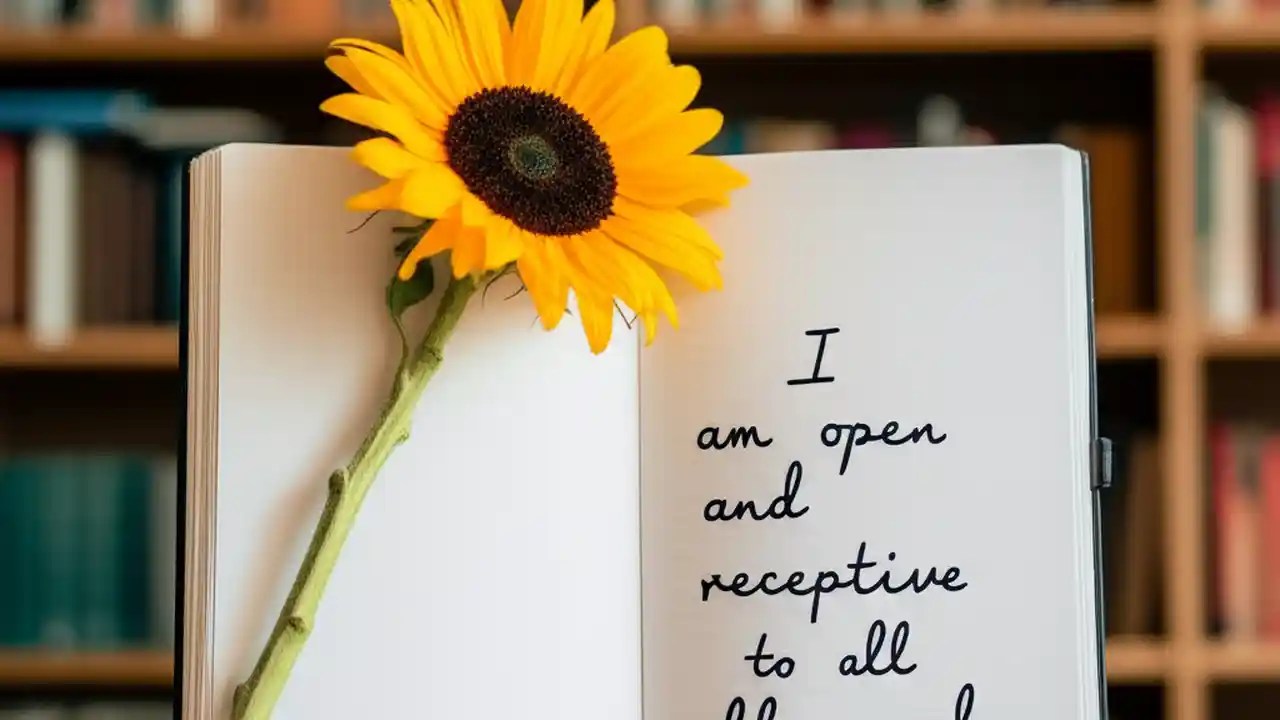 I
am open
and
receptive
to all